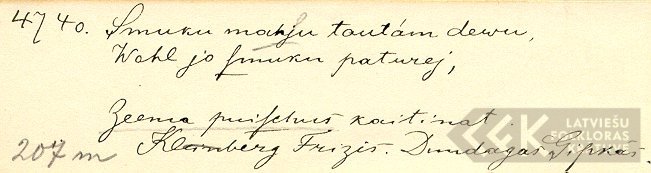 4740. Smuku mahsu tautám dewu,
Wehl jo smuku paturej,
Zeema puischus kaitinat.
207 m Klernberg Frizis. Dundagas Gipkás.
LFK LATVIEŠU FOLKLORAS